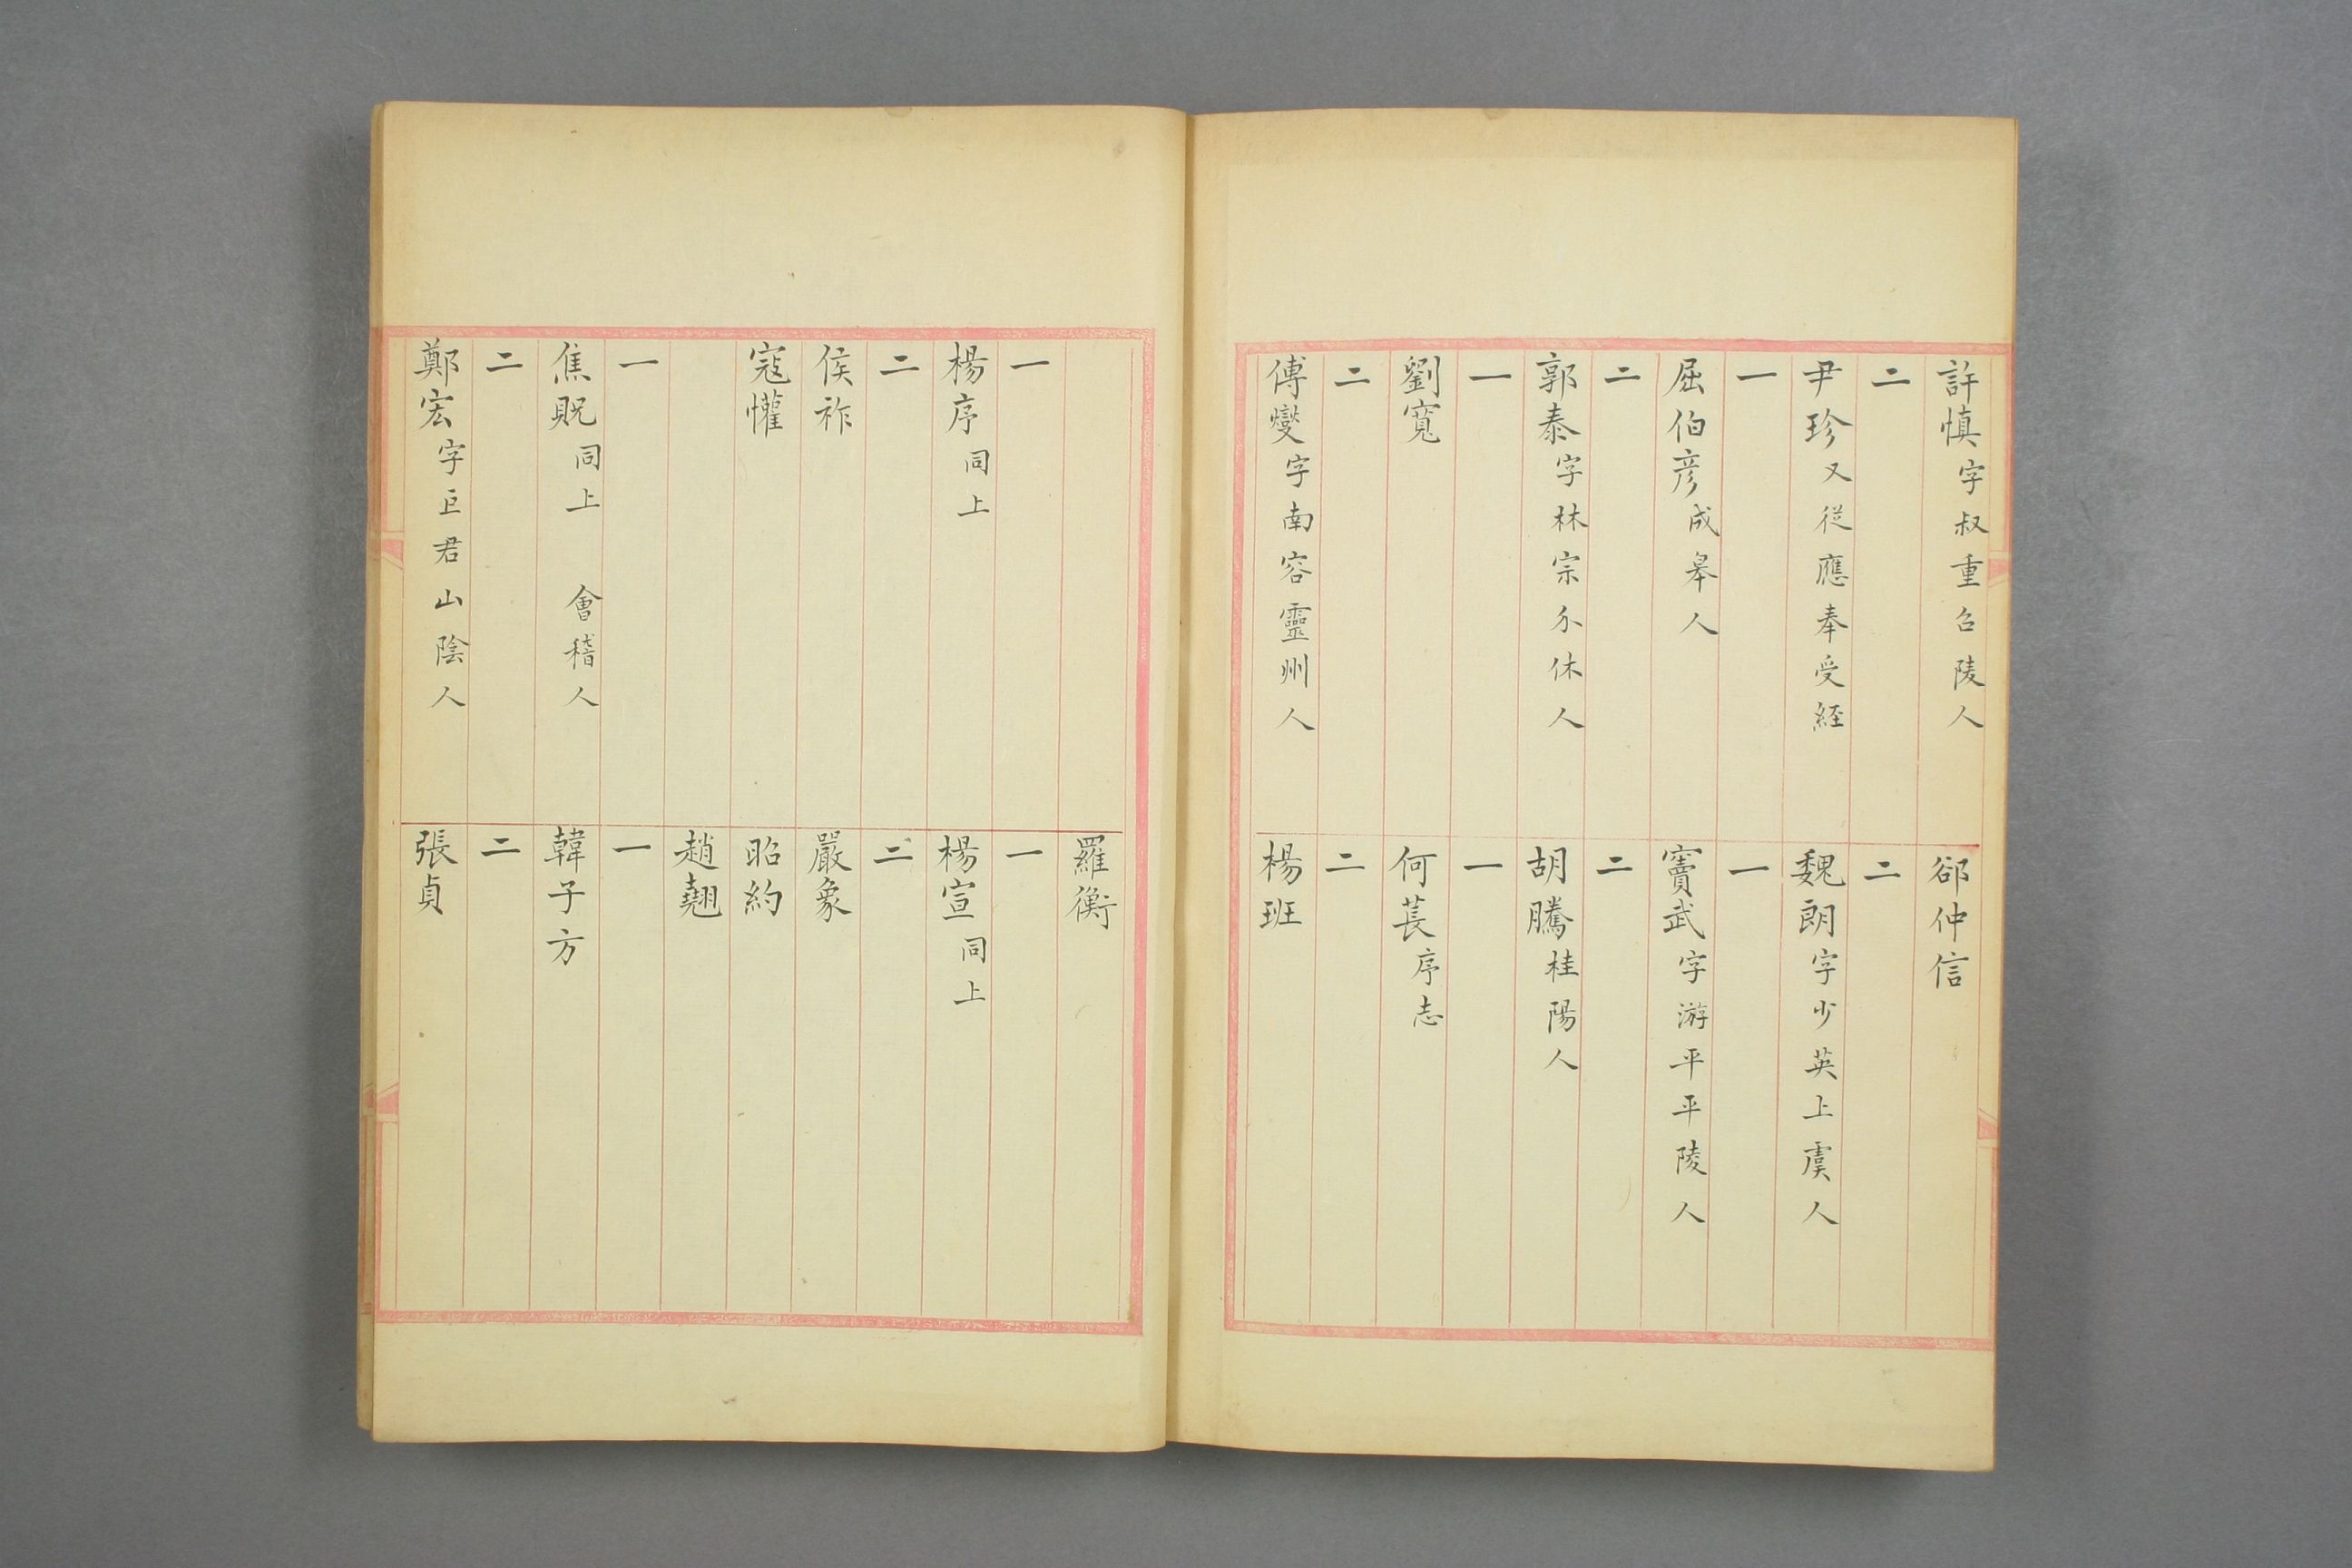 許慎字叔重召陵人
二
尹珍又從應奉受経
一
屈伯彦成皋人
二
郭泰字林宗介休人
一
劉寬
二
傅燮字南容靈州人
郤仲信
二
魏朗字少英上虞人
一
竇武字游平平陵人
二
胡騰桂陽人
一
何萇序志
二
楊班
一
楊序同上
二
侯祚
寇懽
一
焦贶同上 會稽人
二
鄭宏字巨君山陰人
羅衡
一
楊宣同上
二
嚴象
昭約
趙翹
一
韓子方
二
張貞